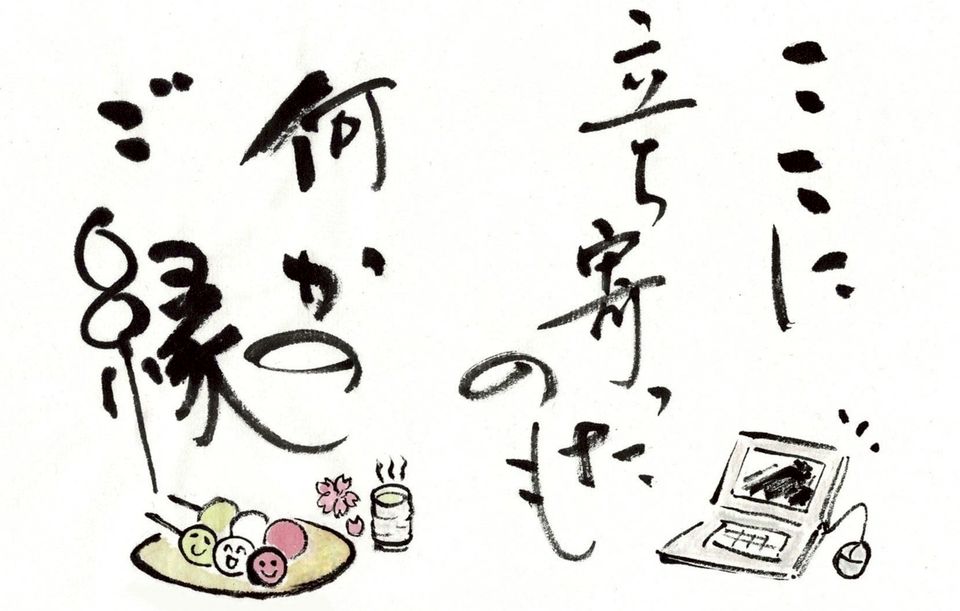 ここに
立ち寄った
のも
何かの
ご縁